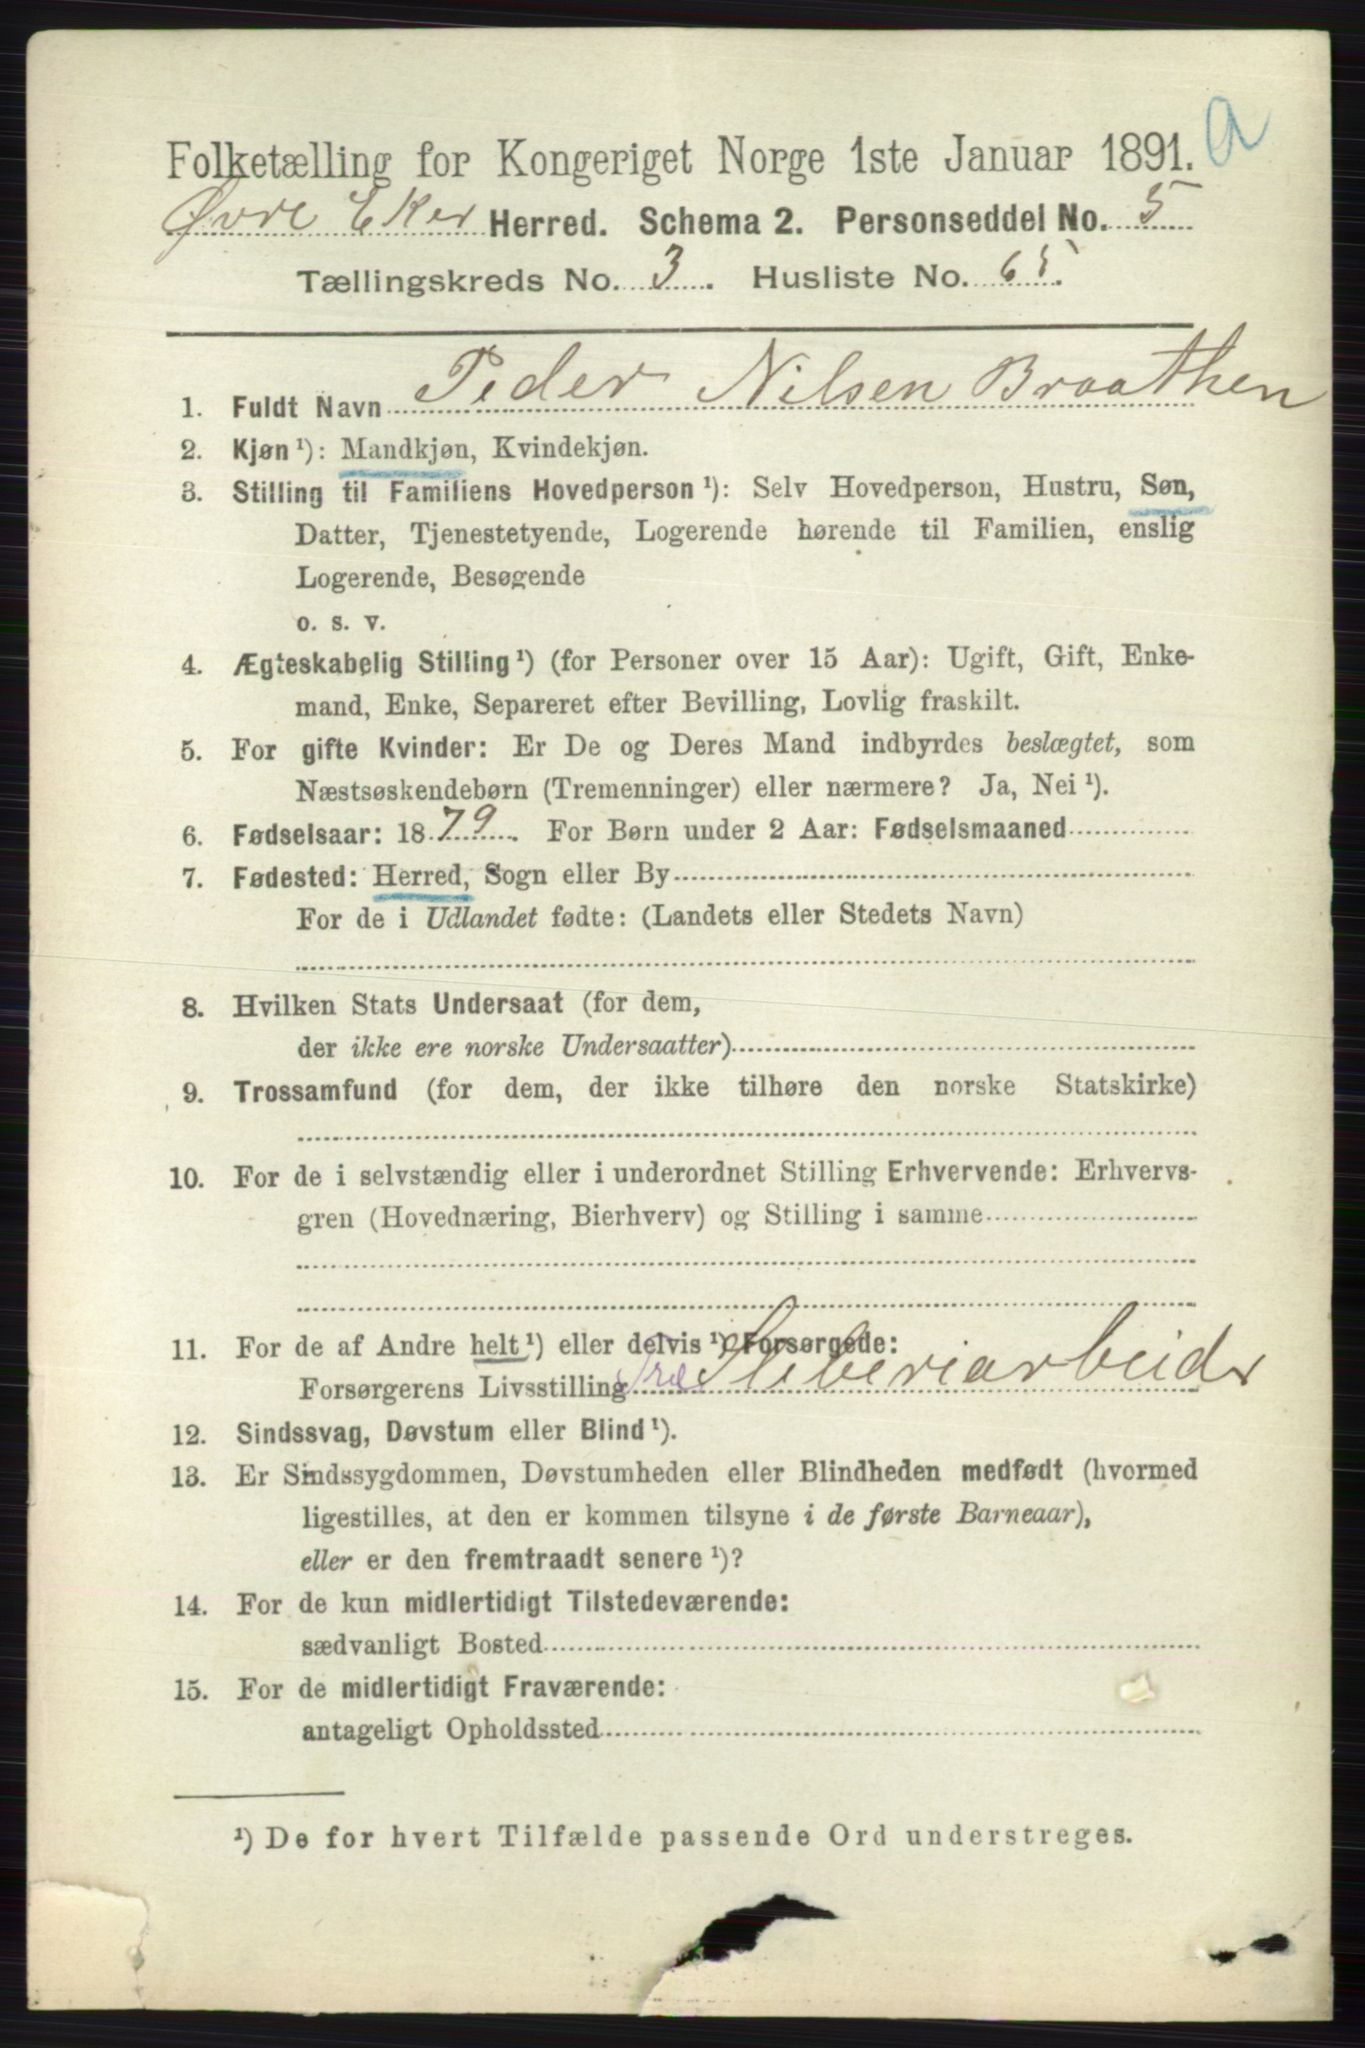 a
Folketælling for Kongeriget Norge 1ste Januar 1891.
Øvre Eker Herred. Schema 2. Personseddel No. 5
Tællingskreds No. 3. Husliste No. 65.
1. Fuldt Navn Peder Nilsen Braathen
2. Kjøn ¹): Mandkjøn, Kvindekjøn.
3. Stilling til Familiens Hovedperson ¹): Selv Hovedperson, Hustru, Søn,
Datter, Tjenestetyende, Logerende hørende til Familien, enslig
Logerende, Besøgende
o. s. v.
4. Ægteskabelig Stilling ¹) (for Personer over 15 Aar): Ugift, Gift, Enke-
mand, Enke, Separeret efter Bevilling, Lovlig fraskilt.
5. For gifte Kvinder: Er De og Deres Mand indbyrdes beslægtet, som
Næstsøskendebørn (Tremenninger) eller nærmere? Ja, Nei ¹).
6. Fødselsaar: 1879. For Børn under 2 Aar: Fødselsmaaned
7. Fødested: Herred, Sogn eller By
For de i Udlandet fødte: (Landets eller Stedets Navn)
8. Hvilken Stats Undersaat (for dem,
der ikke ere norske Undersaatter)
9. Trossamfund (for dem, der ikke tilhøre den norske Statskirke)
10. For de i selvstændig eller i underordnet Stilling Erhvervende: Erhvervs-
gren (Hovednæring, Bierhverv) og Stilling i samme
11. For de af Andre helt ¹) eller delvis ¹) Forsørgede:
Forsørgerens Livsstilling Træ Sliberiarbeider
12. Sindssvag, Døvstum eller Blind ¹).
13. Er Sindssygdommen, Døvstumheden eller Blindheden medfødt (hvormed
ligestilles, at den er kommen tilsyne i de første Barneaar),
eller er den fremtraadt senere ¹)?
14. For de kun midlertidigt Tilstedeværende:
sædvanligt Bosted
15. For de midlertidigt Fraværende:
antageligt Opholdssted
¹) De for hvert Tilfælde passende Ord understreges.